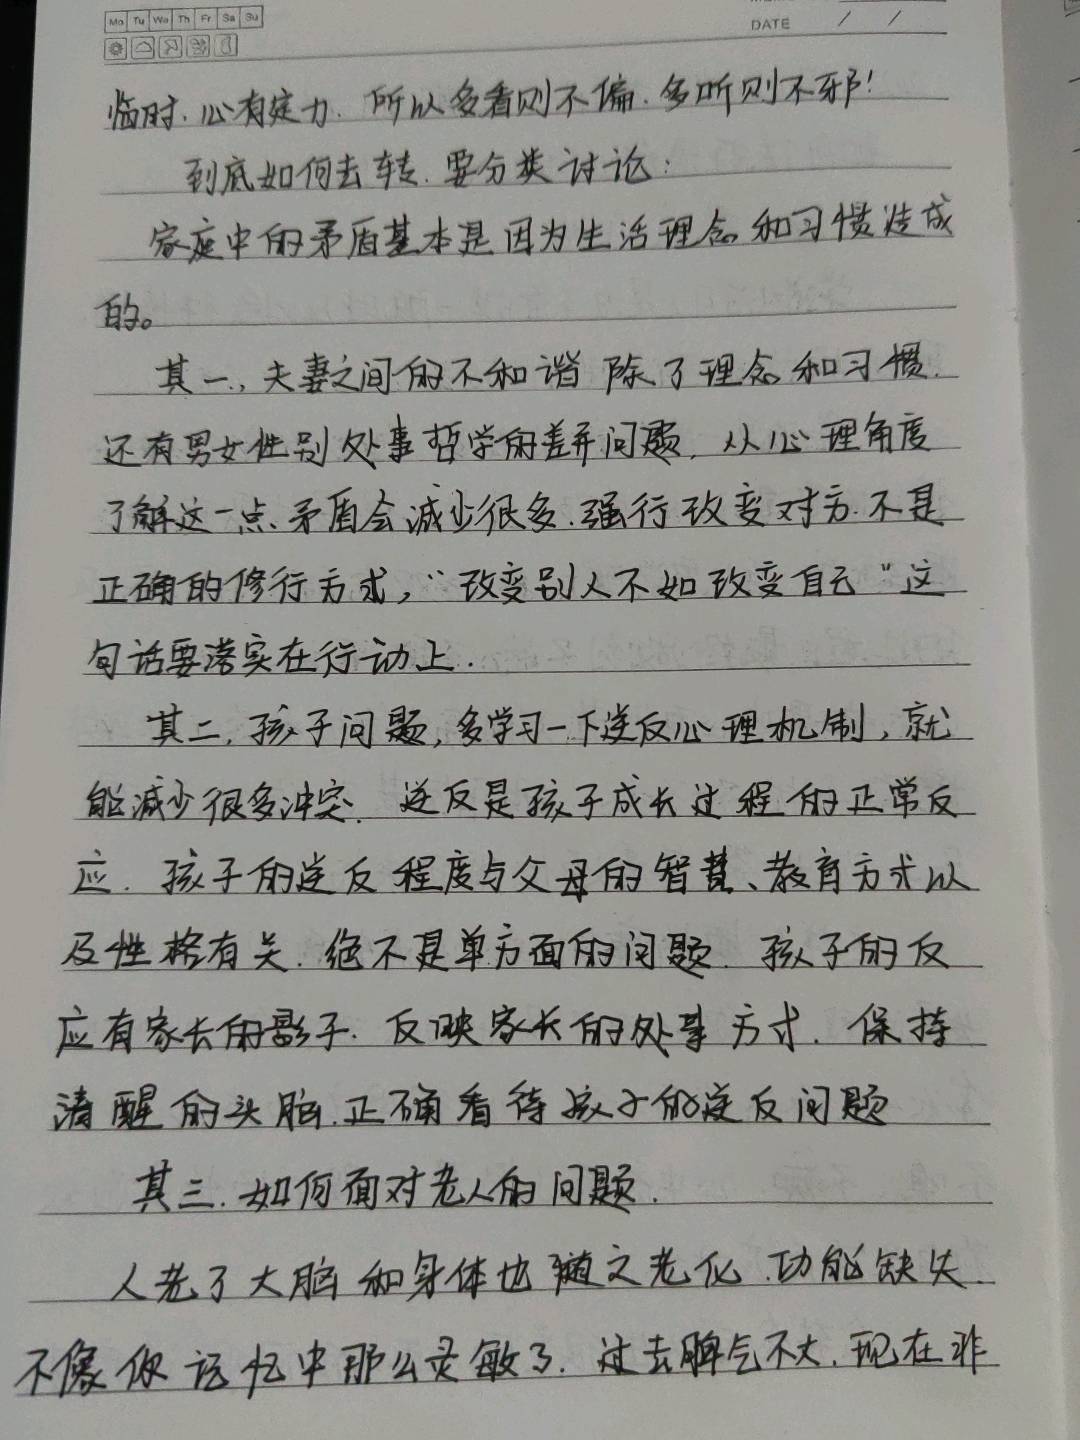 Mo Tu We Th Fr Sa Su
DATE / /
临时.心有定力.所以多看则不偏.多听则不邪!
到底如何去转.要分类讨论:
家庭中的矛盾基本是因为生活理念和习惯造成
的。
其一,夫妻之间的不和谐 除了理念和习惯.
还有男女性别处事哲学的差异问题.从心理角度
了解这一点、矛盾会减少很多.强行改变对方.不是
正确的修行方式,“改变别人不如改变自己”这
句话要落实在行动上.
其二.孩子问题,多学习一下逆反心理机制,就
能减少很多冲突.逆反是孩子成长过程的正常反
应.孩子的逆反程度与父母的智慧、教育方式以
及性格有关.绝不是单方面的问题.孩子的反
应有家长的影子.反映家长的处事方式.保持
清醒的头脑.正确看待孩子的逆反问题
其三.如何面对老人的问题.
人老了大脑和身体也随之老化.功能缺失.
不像你记忆中那么灵敏了.过去脾气不大.现在非